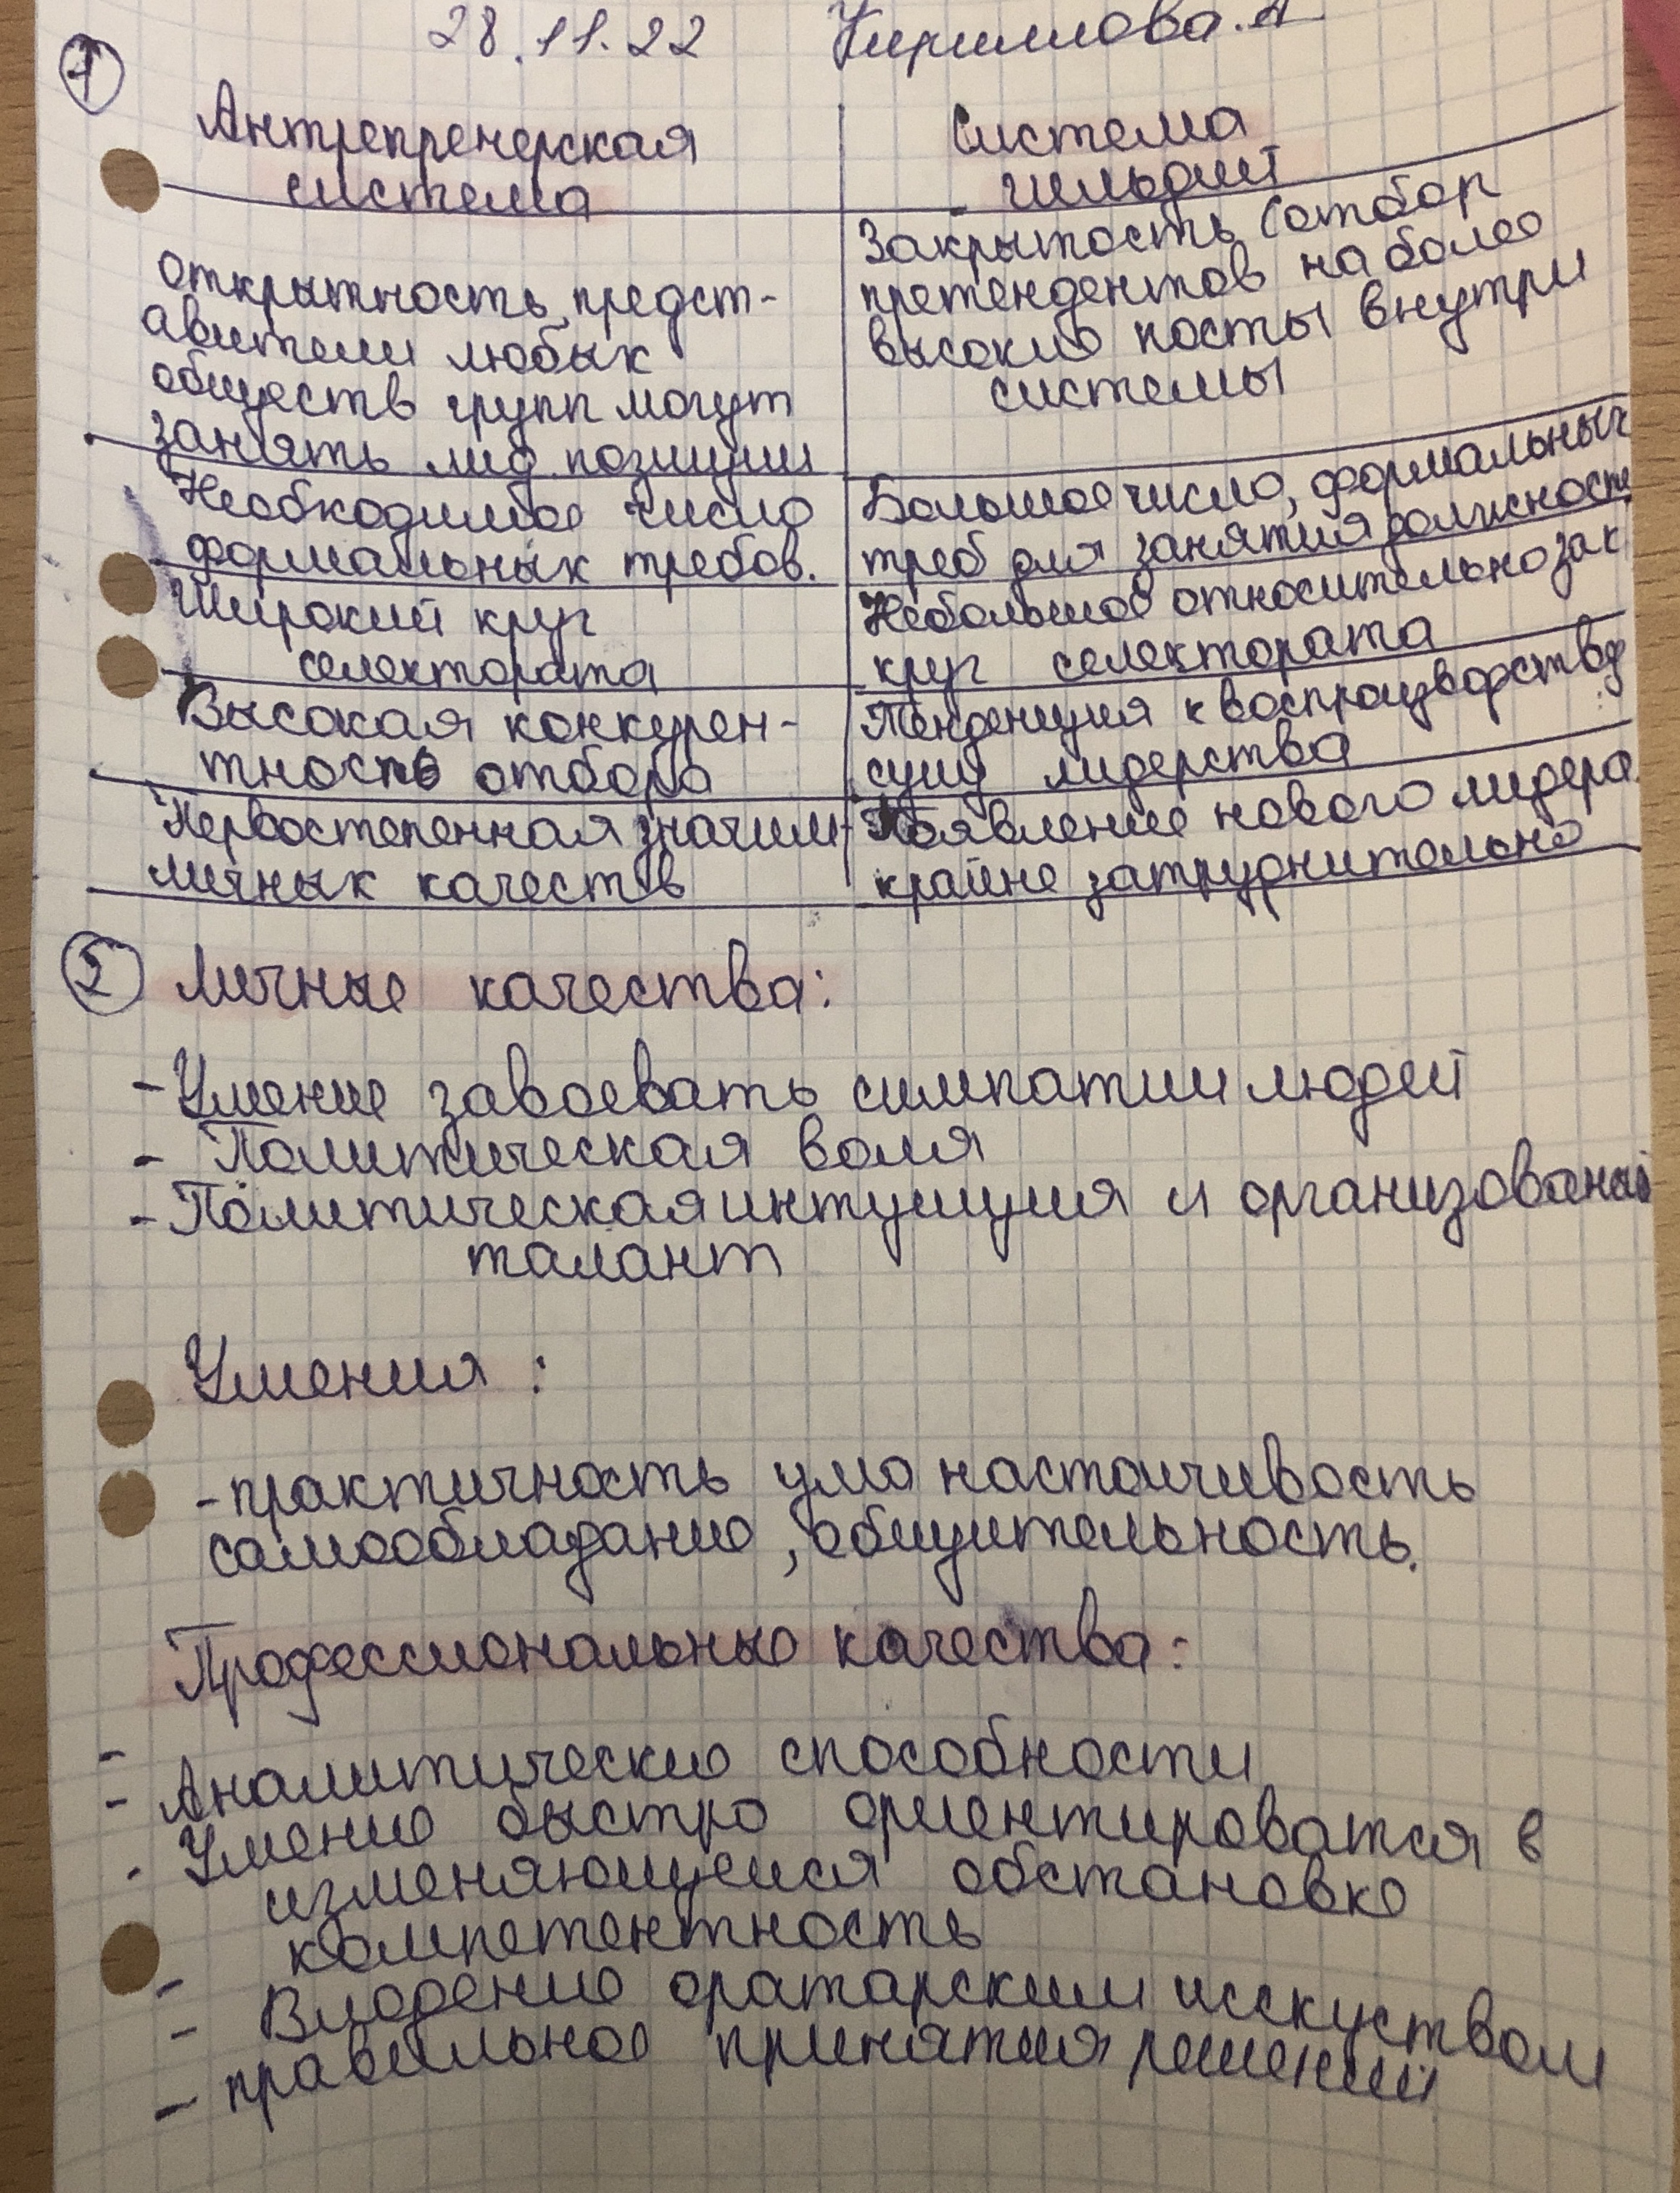 28.11.22 Кириллова.А
1
Антрепренерская
система
открытность, предст-
авители любых
обществ групп могут
занять лид. позиции
Необходимое число
формальных требов.
Широкий круг
селектората
Высокая конкурен-
тность отбора
Первостепенная значим-
личных качеств
Система
гильдий
Закрытость (отбор
претендентов на более
высокие посты внутри
системы
Большое число, формальных
треб для занятия должности
Небольшое относительно зак
круг селектората
Тенденция к воспроизводству
сущ лидерства
Появление нового лидера
крайне затруднительно
2 Личные качества:
- Умение завоевать симпатии людей
- Политическая воля
- Политическая интуиция и организований
талант
Умения:
- практичность ума настойчивость
самообладание, общительность.
Профессиональные качества:
-
- Аналитические способности
- Умение быстро ориентироватся в
изменяющейся обстановке
- компетентность
- Владение оратарским исскуством
- правильное принятия решений